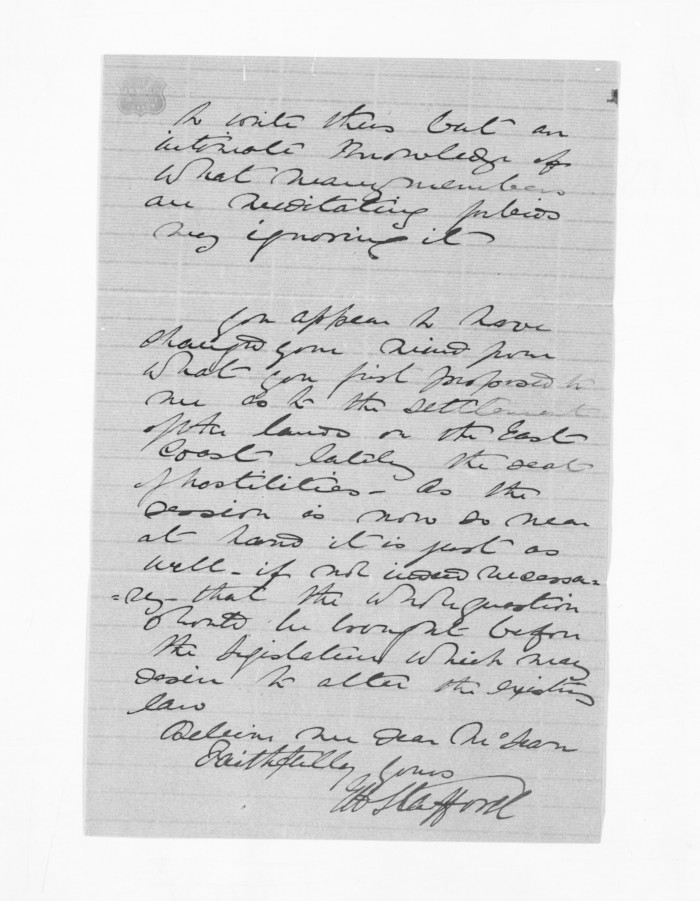 to write this but an
intimate knowledge of
what many members
are meditating forbids
my ignoring it
You appear to have
changed your mind from
what you first proposed to
me as to the settlement
of the lands on the East
Coast lately the seat
of hostilities - as the
session is now so near
at hand it is just as
well - if not indeed necessa-
=ry - that the whole question
should be brought before
the Legislature which may
desire to alter the existing
law
Believe me dear McLean
Faithfully yours
Stafford